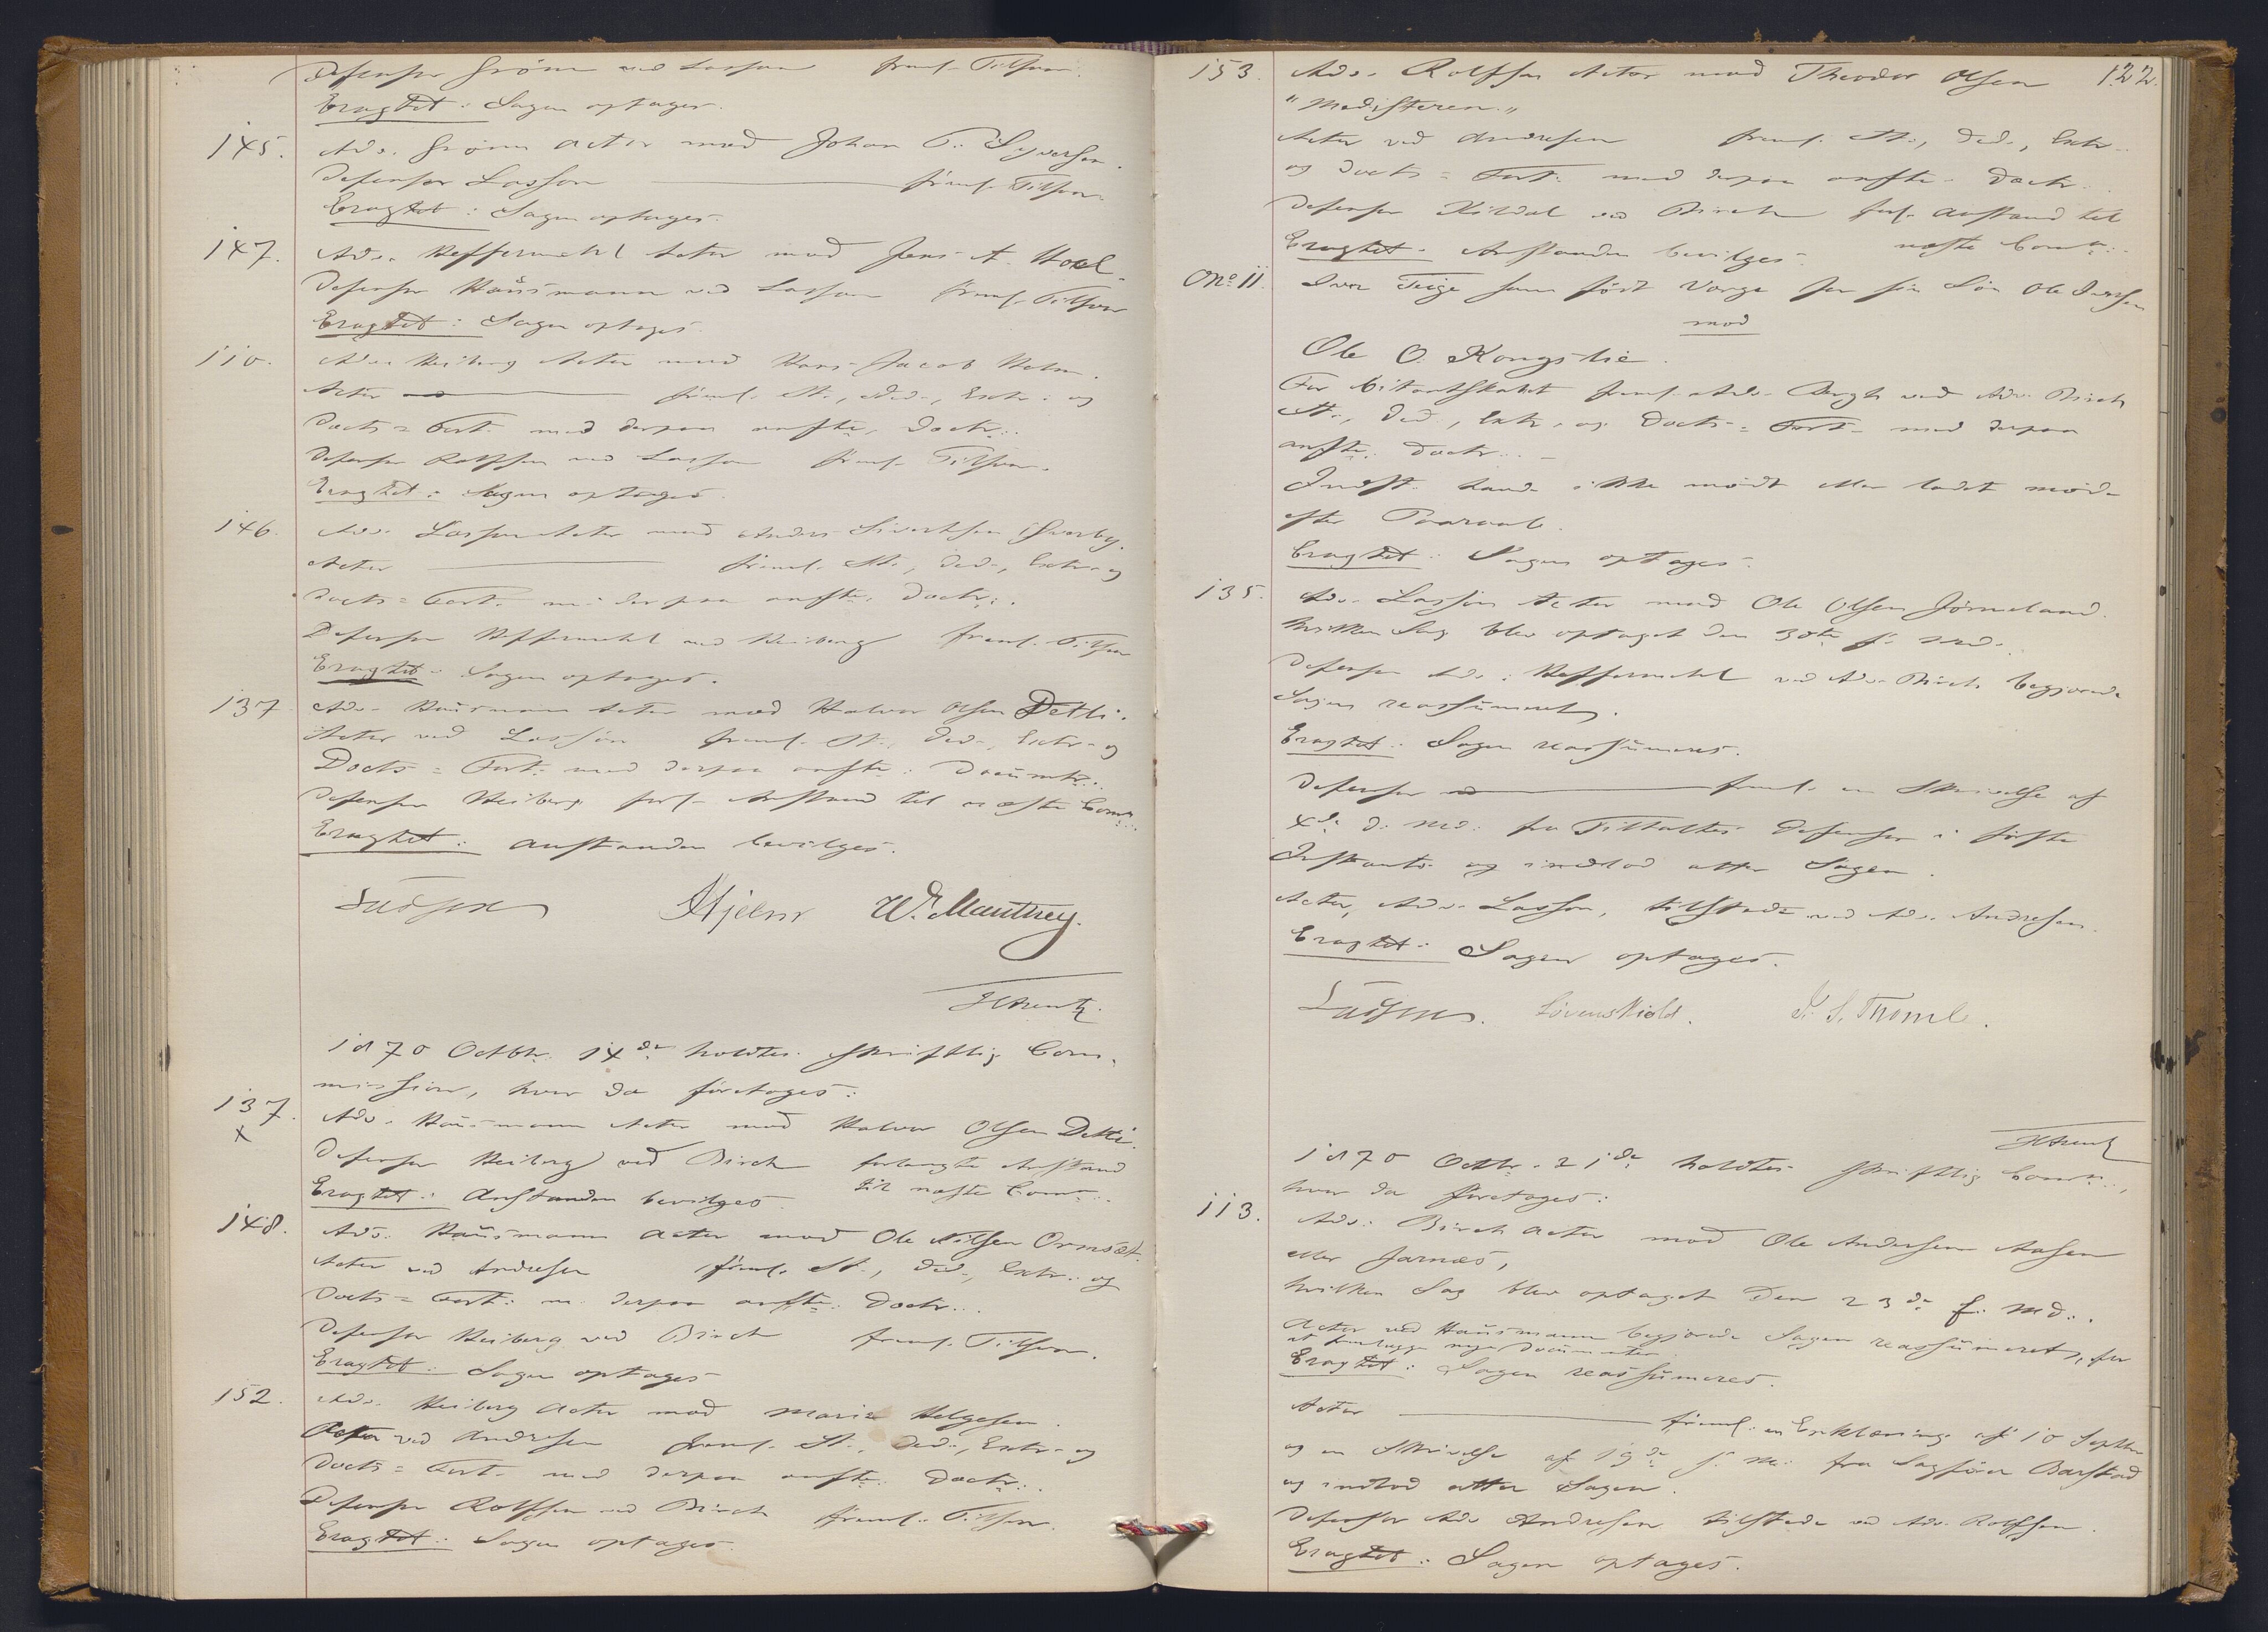 Defensor Grönn ved Lasson freml. Tilsvar.
Eragtet: Sagen optages.
145. Adv. Grönn Actor mod Johan P. Syversen.
Defensor Lasson freml. Tilsvar.
Eragtet: Sagen optages.
147. Adv. Heffermehl Actor mod Jens A. Hoel.
Defensor Hausmann ved Lasson freml. Tilsvar
Eragtet: Sagen optages.
110. Adv. Heiberg Actor mod Hans Jacob Holm.
Actor freml. St., Ded., Extr. og
Docts = Fort. med derpaa anfte. Doctr..
Defensor Rolfsen ved Lasson freml. Tilsvar.
Eragtet: Sagen optages.
146. Adv. Lasson Actor mod Anders Sivertsen
Actor freml. St., Ded., Extr. og
Docts = Fort. m. derpaa anfte. Doctr..
Defensor Heffermehl ved Heiberg freml. Tilsvar
Eragtet: Sagen optages.
137 Adv. Hausmann Actor mod Halvor Olsen Detli.
Actor ved Lasson freml. St., Ded., Extr. og
Docts = Fort. med derpaa anfte. Documtr..
Defensor Heiberg forl. Anstand til næste Comn..
Eragtet: Anstanden bevilges.
Lasson Hjelm W. Manthey.
HArentz.
1870 Octbr. 14de holdtes skriftlig Com-
mission, hvor da foretoges:
137. Adv. Hausmann Actor mod Halvor Olsen Detli.
x
Defensor Heiberg ved Birch forlangte Anstand
til næste Comn..
Eragtet: Anstanden bevilges.
148. Adv. Hausmann Actor mod Ole Nilsen Ormsæt.
Actor ved Andresen freml. St., Ded., Extr. og
Docts = Fort. m. derpaa anfte. Doctr..
Defensor Heiberg ved Birch freml. Tilsvar.
Eragtet: Sagen optages
152. Adv. Heiberg Actor mod Marie Helgesen.
Actor ved Andresen freml. St., Ded., Extr. og
Docts = Fort. med derpaa anfte. Doctr..
Defensor Rolfsen ved Birch freml. Tilsvar.
Eragtet: Sagen optages.
122.
153. Adv. Rolfsen Actor mod Theodor Olsen
"Madisteren"
Actor ved Andresen freml. St., Ded., Extr.
og Docts = Fort. med derpaa anfte. Doctr..
Defensor Kildal ved Birch forl. Anstand til
næste Comn..
Eragtet: Anstanden bevilges.
No. 11. Iver Teige som født Værge for sin Søn Ole Iversen
mod
Ole O. Kongslie.
For Citantskabet freml. Adv. Bergh ved Adv. Birch
St., Ded., Extr. og Docts = Fort. med derpaa
anfte. Doctr..
Indst. havde ikke mødt eller ladet møde
efter Paaraab.
Eragtet: Sagen optages.
135. Adv. Lasson Actor mod Ole Olsen Jørneland.
hvilken Sag blev optaget den 30te f. Md.
Defensor Adv. Heffermehl ved Adv. Birch begjærede
Sagen reassumeret.
Eragtet: Sagen reassumeres.
Defensor freml. en Skrivelse af
4de d. Md. fra Tiltaltes Defensor i første
Instants og indlod atter Sagen.
Actor, Adv. Lasson, tilstede ved Adv. Andresen.
Eragtet: Sagen optages.
Lasson. Løvenskiold. J. S. Thomle.
HArentz
1870 Octbr. 21de holdtes skriftlig Comn..,
hvor da foretoges:
113. Adv. Birch Actor mod Ole Andersen Aasen
eller Jarnæs,
hvilken Sag blev optaget den 23de f. Md..
Actor ved Hausmann begjærede Sagen reassumeret, for
at fremlægge nye Documenter.
Eragtet: Sagen reassumeres.
Actor freml. en Erklæring af 10 Septbr
og en Skrivelse af 19de f. M. fra Sagfører Barstad
og indlod atter Sagen.
Defensor Adv Andresen tilstede ved Adv. Rolfsen.
Eragtet: Sagen optages.